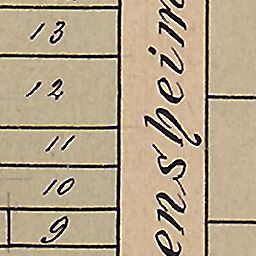 13
12
11
10
9
ensheim